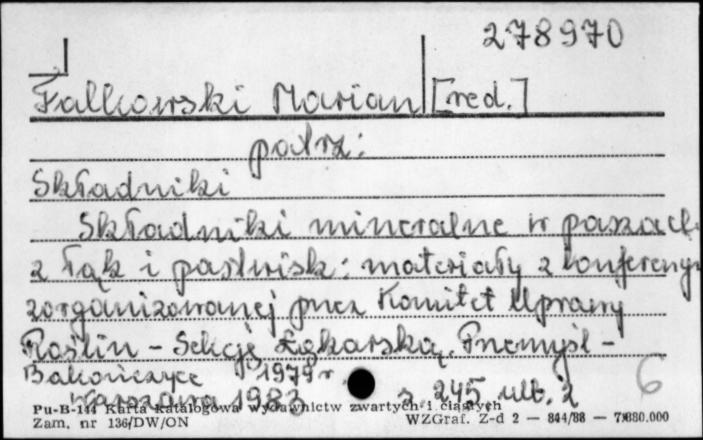 278970
Falkowski Marian [red.]
patrz:
Składniki
Składniki mineralne w paszach
z łąk i pastwisk: materiały z konferencji
zorganizowanej przez Komitet Uprawy
Roślin - Sekcję Łąkarską, Przemyśl -
Bakończyce 1979 r.
Warszawa 1983 s. 245, nlb. 2
6
Pu-B-114 Karta katalogowa wydawnictw zwartych i ciągłych
Zam. nr 136/DW/ON WZGraf. Z-d 2 — 844/88 — 7.880.000